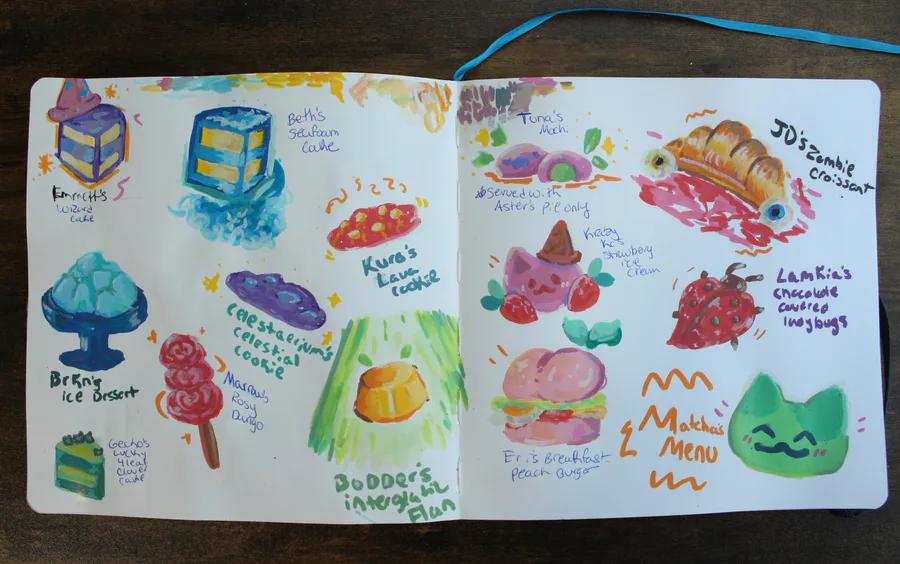 Emmett's
Wizard
Cake
Beth's
Seafoam
Cake
Kura's
Lava
Cookie
Celestaerium's
celestial
cookie
BrKn's
ice Dessert
Marrow's
Rosy
Dango
Gecho's
Lucky
4 leaf
Clover
Cake
Bodder's
interglatic
Flan
Tuna's
Mochi
Served with
Aster's Pie only
JD's Zombie
Croissant
Krazy
Ko's
Strawberry
ice
cream
Lamkia's
chocolate
covered
ladybugs
Eri's Breakfast
Peach Burger
Matcha's
Menu